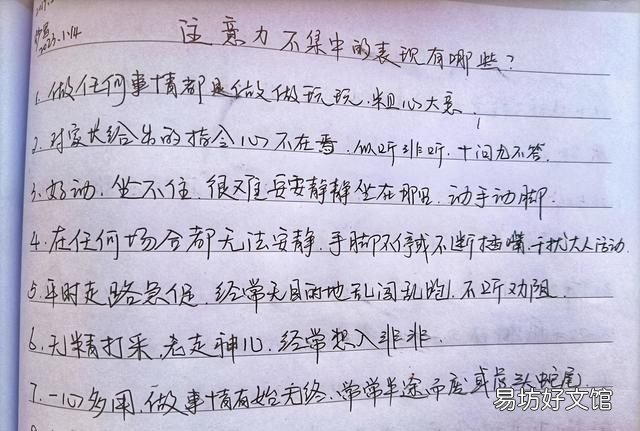 2023.1.14
注意力不集中的表现有哪些?
1. 做任何事情都是做做玩玩,粗心大意,
2. 对家长给出的指令心不在焉.似听非听.十问九不答.
3. 好动.坐不住.很难安安静静坐在那里.动手动脚.
4. 在任何场合都无法安静.手脚不停或不断插嘴.干扰大人活动.
5. 平时走路急促.经常无目的地乱闯乱跑.不听劝阻.
6. 无精打采.老走神儿.经常想入非非.
7. 一心多用.做事情有始无终.常常半途而废或虎头蛇尾.
易坊好文馆